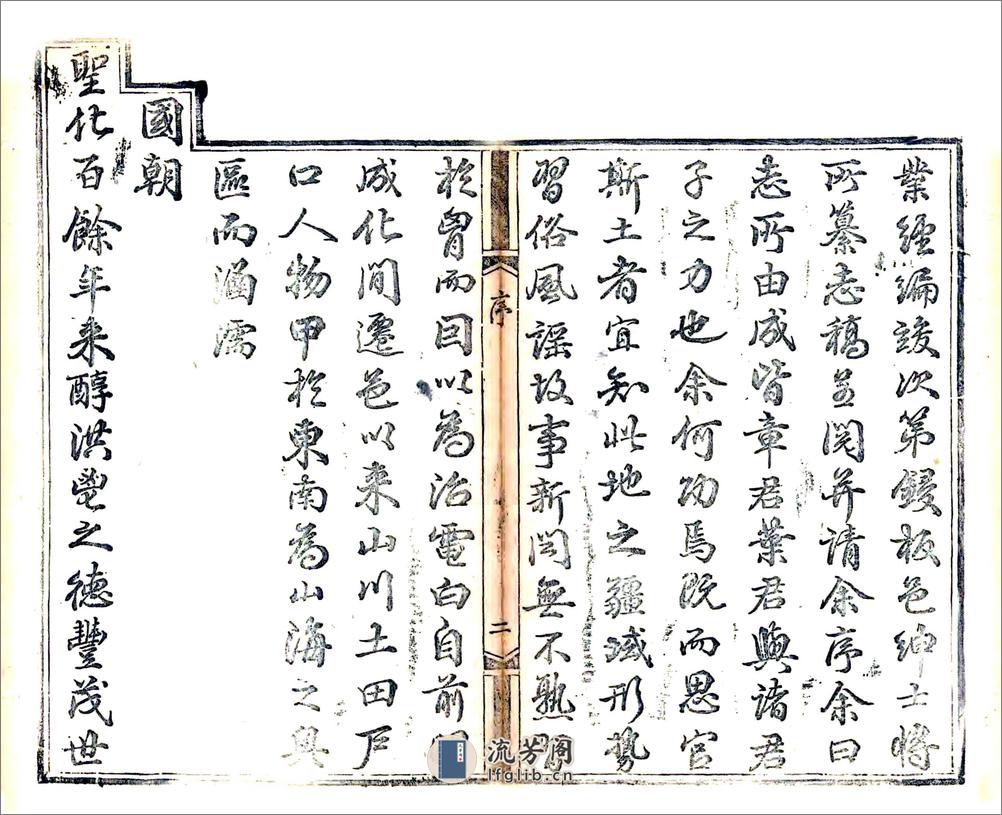 業經編竣次第鋟板邑紳士將
所纂志稿呈閱并請余序余曰
志所由成皆章君葉君與諸君
子之力也余何功焉既而思官
斯土者宜知此地之疆域形勢
習俗風謠故事新聞無不熟
序
二
於胷而囙以為治電白自前明
成化間遷邑以來山川土田戶
口人物甲於東南為山海之奧
區而涵濡
國朝
聖化百餘年來醇洪鬯之德豐茂世
流芳阁
lfglib.cn